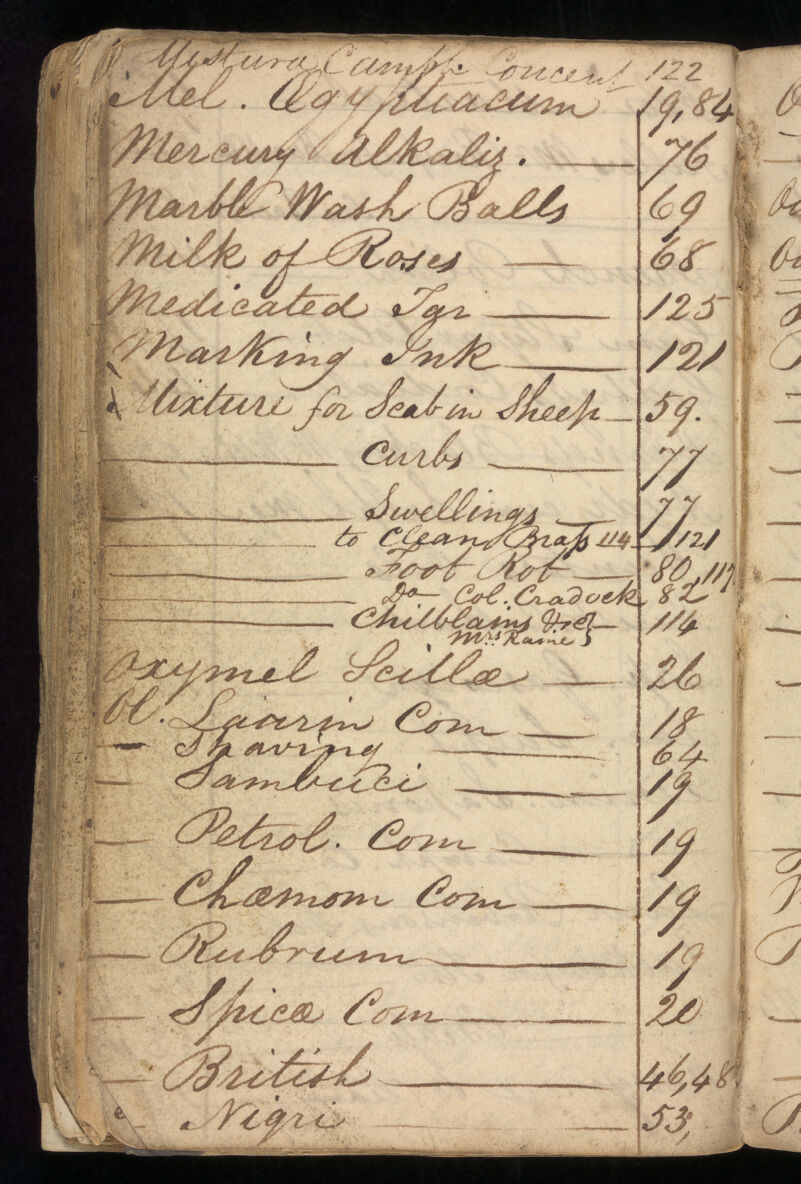 Mistura Camph. Concent 122
Mel. Ægyptiacum 19,84
Mercury Alkaliz. — 76
Marble Wash Balls 69
Milk of Roses — 68
Medicated Tgr — 125
Marking Ink — 121
Mixture for Scab in Sheep — 59.
— Curbs — 77
— Swellings — 77
— to Clean Brass 114 — 121
— Foot Rot — 80, 117
— Do Col. Cradock 82
— Chilblains &c — 114
Mrs Raine
Oxymel Scillæ — 26
Ol. Laurin Com — 18
— Shaving — 64
— Sambuci — 19
— Petrol. Com — 19
— Chæmom Com — 19
— Rubrum — 19
— Spicæ Com — 20
— British — 46,48
— Nigri — 53,